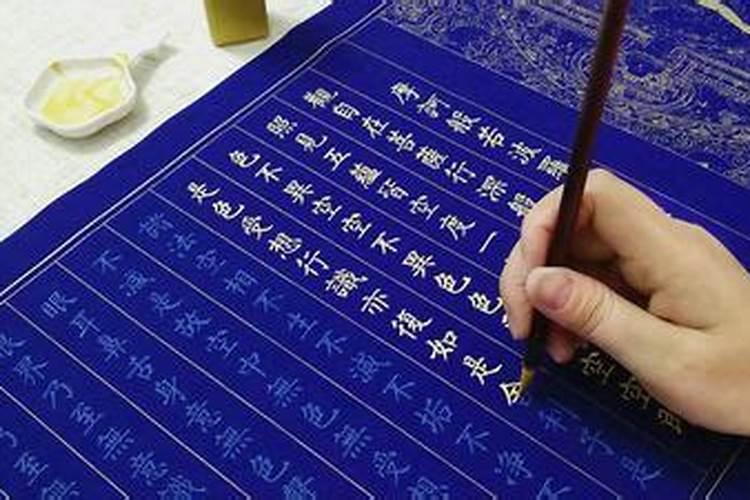 摩訶般若波羅
觀自在菩薩行深般
照見五蘊皆空度一
色不異空空不異色色
空空即
是色受想行識亦復如是舍利子是
諸法空相不生不滅不垢不淨
不減是故空中無色無受想
眼耳鼻舌身意無色聲
眼界乃至無意識
乃至無